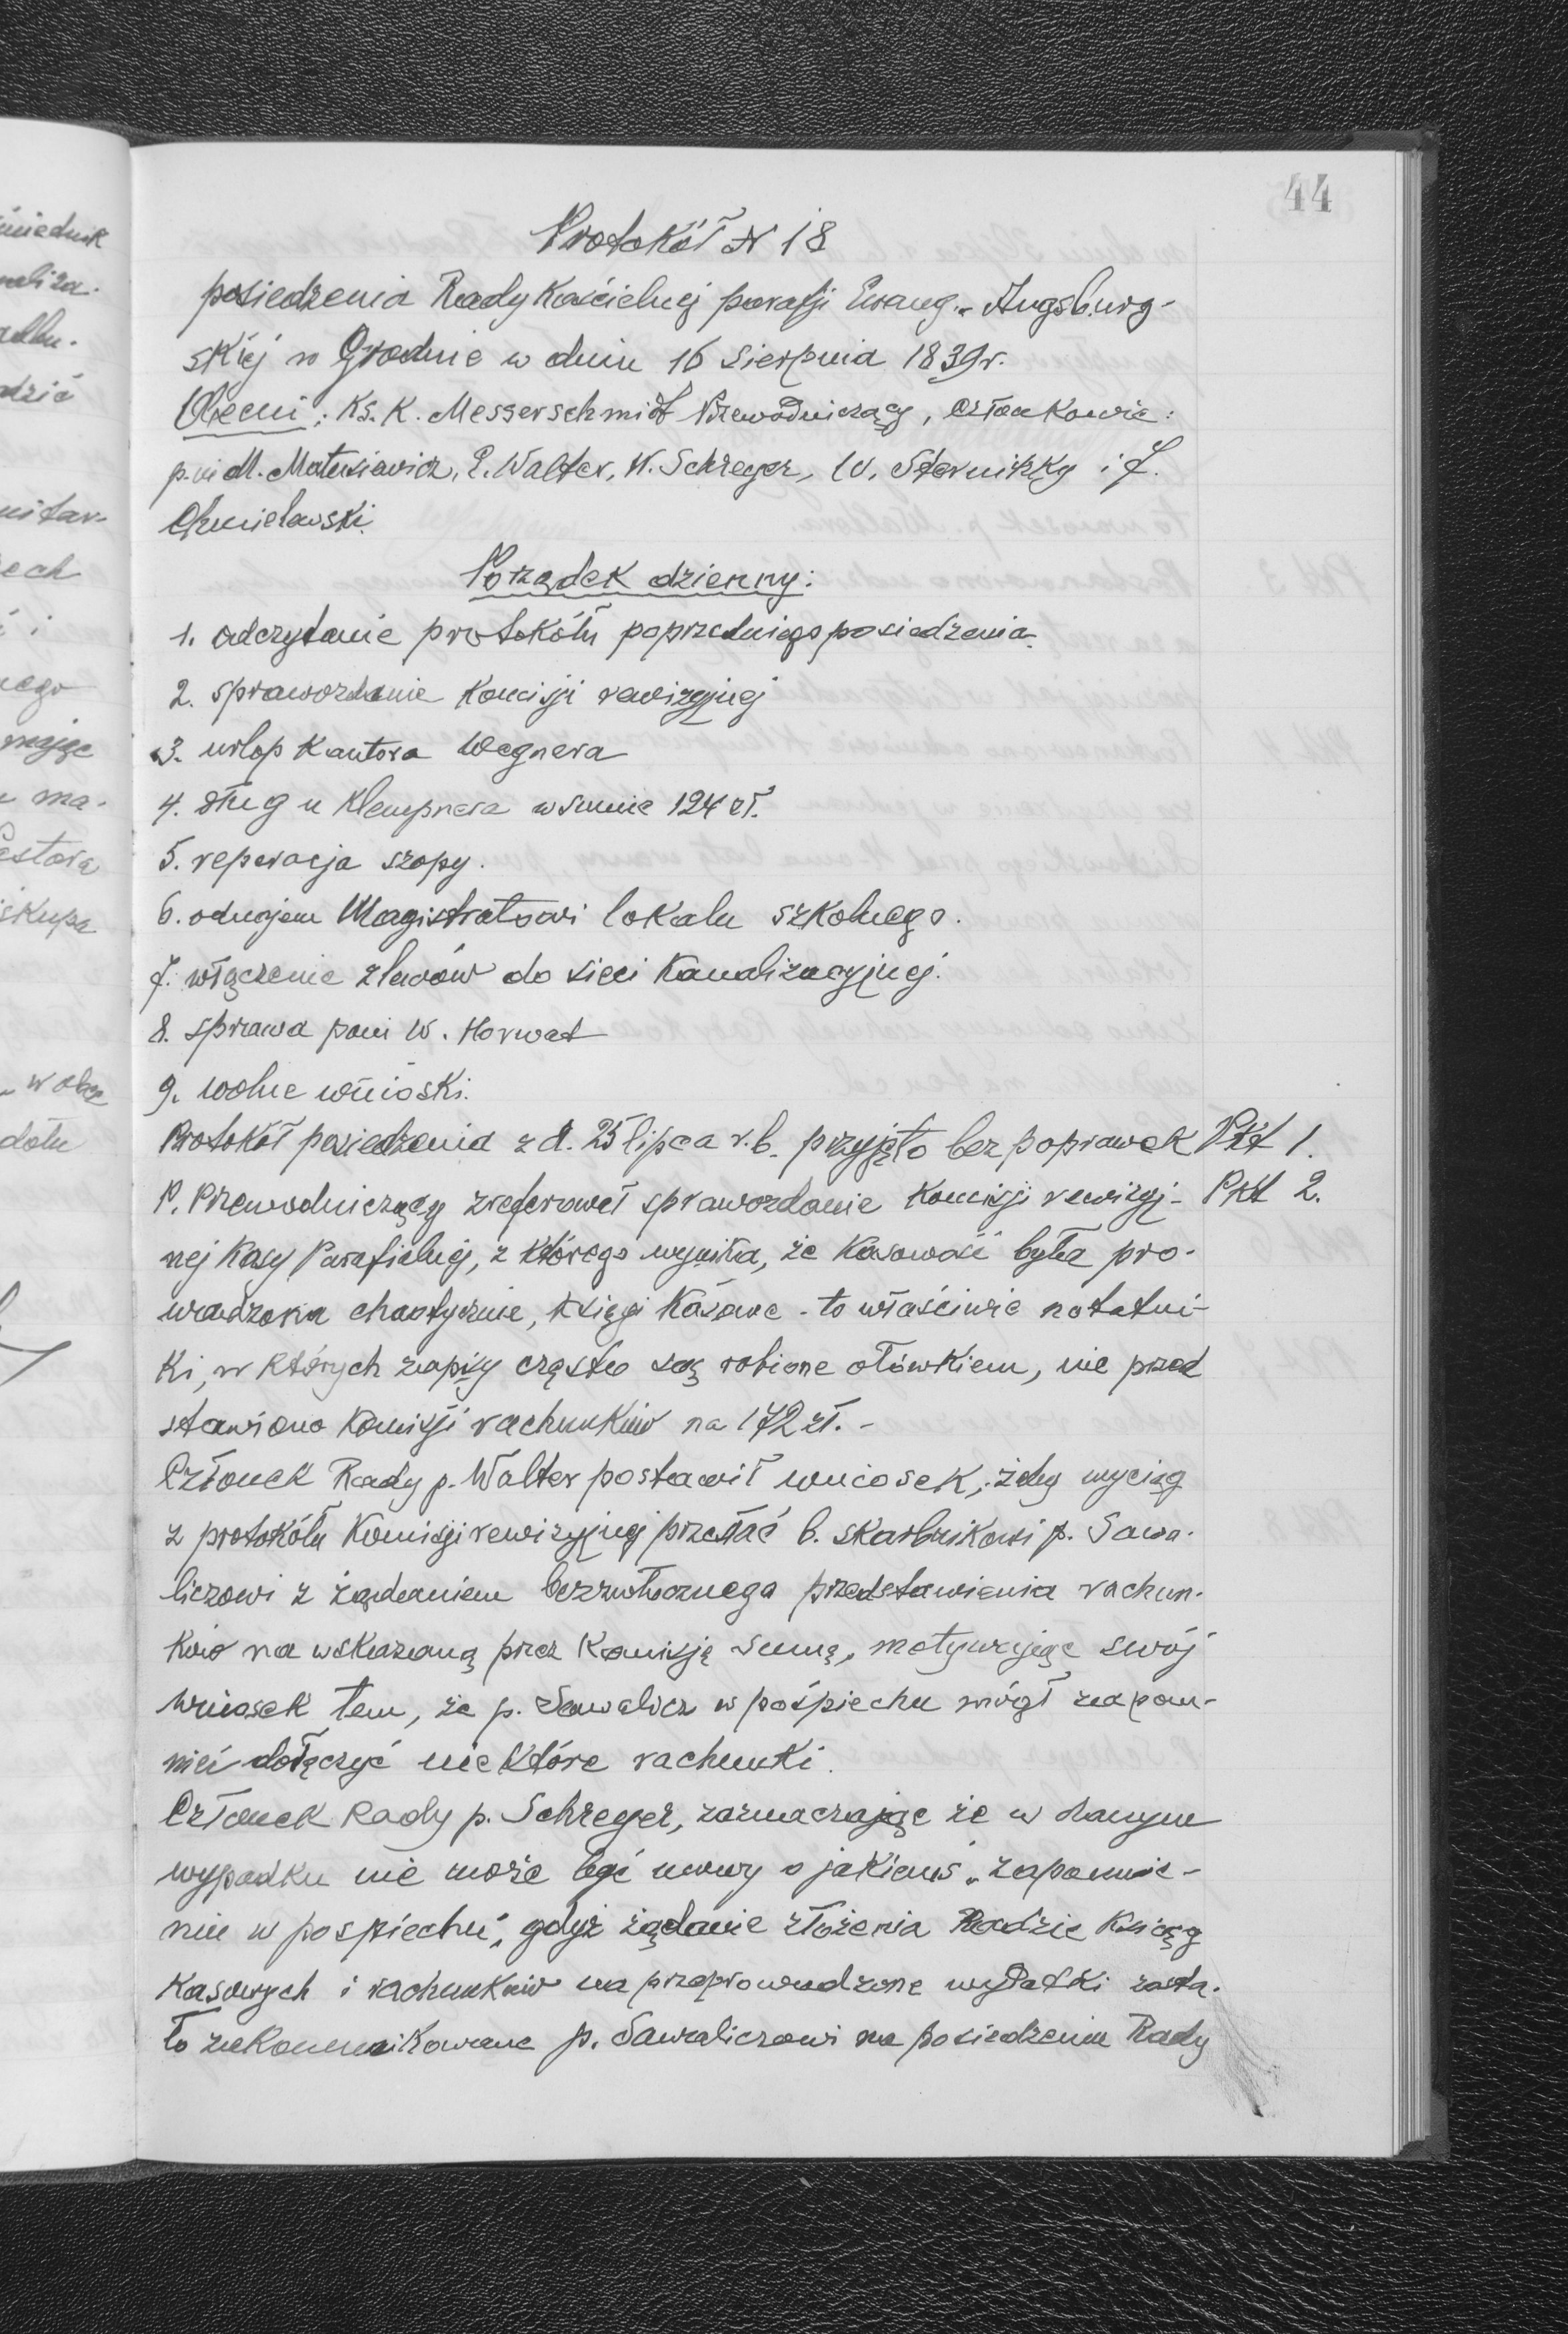 44
Protokół N 18
posiedzenia Rady Kościelnej parafji Ewang.-Augsburg-
skiej w Grodnie w dniu 16 sierpnia 1839r.
Obecni: Ks. K. Messerschmidt Przewodniczący, członkowie:
p.ni M. Matusiewicz, E. Walter, W. Schreyer, W. Sternitzky i J.
Chmielewski.
Porządek dzienny:
1. odczytanie protokółu poprzedniego posiedzenia.
2. sprawozdanie Komisji rewizyjnej
3. urlop Kantora Wegnera
4. dług u Klempnera w sumie 124 zł.
5. reperacja szopy.
6. odnajem Magistratowi lokalu szkolnego.
7. włączenie zlewów do sieci Kanalizacyjnej.
8. sprawa pani W. Horwat
9. wolne wnioski.
Protokół posiedzenia z d. 25 lipca r.b. przyjęto bez poprawek Pkt 1.
P. Przewodniczący zreferował sprawozdanie Komisji rewizyj- Pkt 2.
nej Kasy Parafjalnej, z którego wynika, że Kasowość była pro-
wadzona chaotycznie, Księgi Kasowe - to właściwie notatni-
ki, w których zapisy często są robione ołówkiem, nie przed
stawiono Komisji rachunków na 172 zł. -
Członek Rady p. Walter postawił wniosek, żeby wyciąg
z protokółu Komisji rewizyjnej przesłać b. skarbnikowi p. Sawa-
liczowi z żądaniem bezzwłocznego przedstawienia rachun-
ków na wskazaną przez Komisję sumę, motywując swój
wniosek tem, że p. Sawalicz w pośpiechu mógł zapom-
nieć dołączyć niektóre rachunki.
Członek Rady p. Schreyer, zaznaczając że w danym
wypadku nie może być mowy o jakiemś „zapomnie-
niu w pospiechu", gdyż żądanie złożenia Radzie Ksiąg
Kasowych i rachunków na przeprowadzone wydatki zosta-
ło zakomunikowane p. Sawaliczowi na posiedzeniu Rady